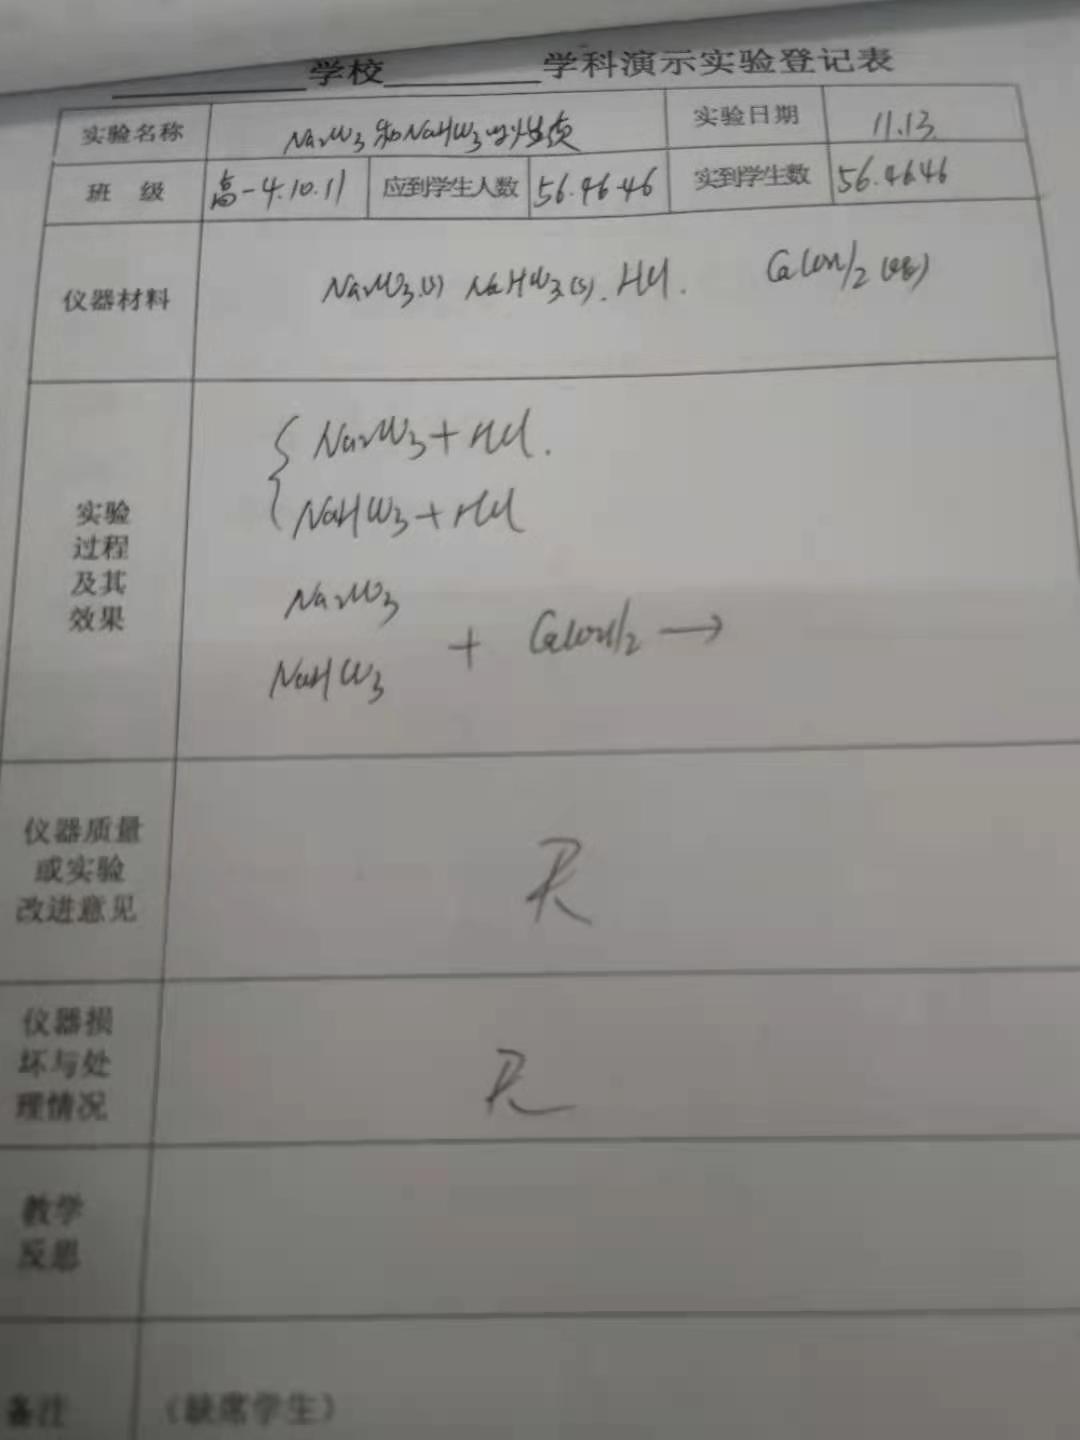 ______学校______学科演示实验登记表
实验名称 Na2CO3和NaHCO3的性质 实验日期 11.13
班 级 高一4.10.11 应到学生人数 56.46.46 实到学生数 56.46.46
仪器材料 Na2CO3(s) NaHCO3(s). HCl. Ca(OH)2(aq)
Na2CO3+HCl.
NaHCO3+HCl
实验
过程
及其
效果
Na2CO3
+ Ca(OH)2 →
NaHCO3
仪器质量
或实验
改进意见
仪器损
坏与处
理情况
教学
反思
备注 (缺席学生)